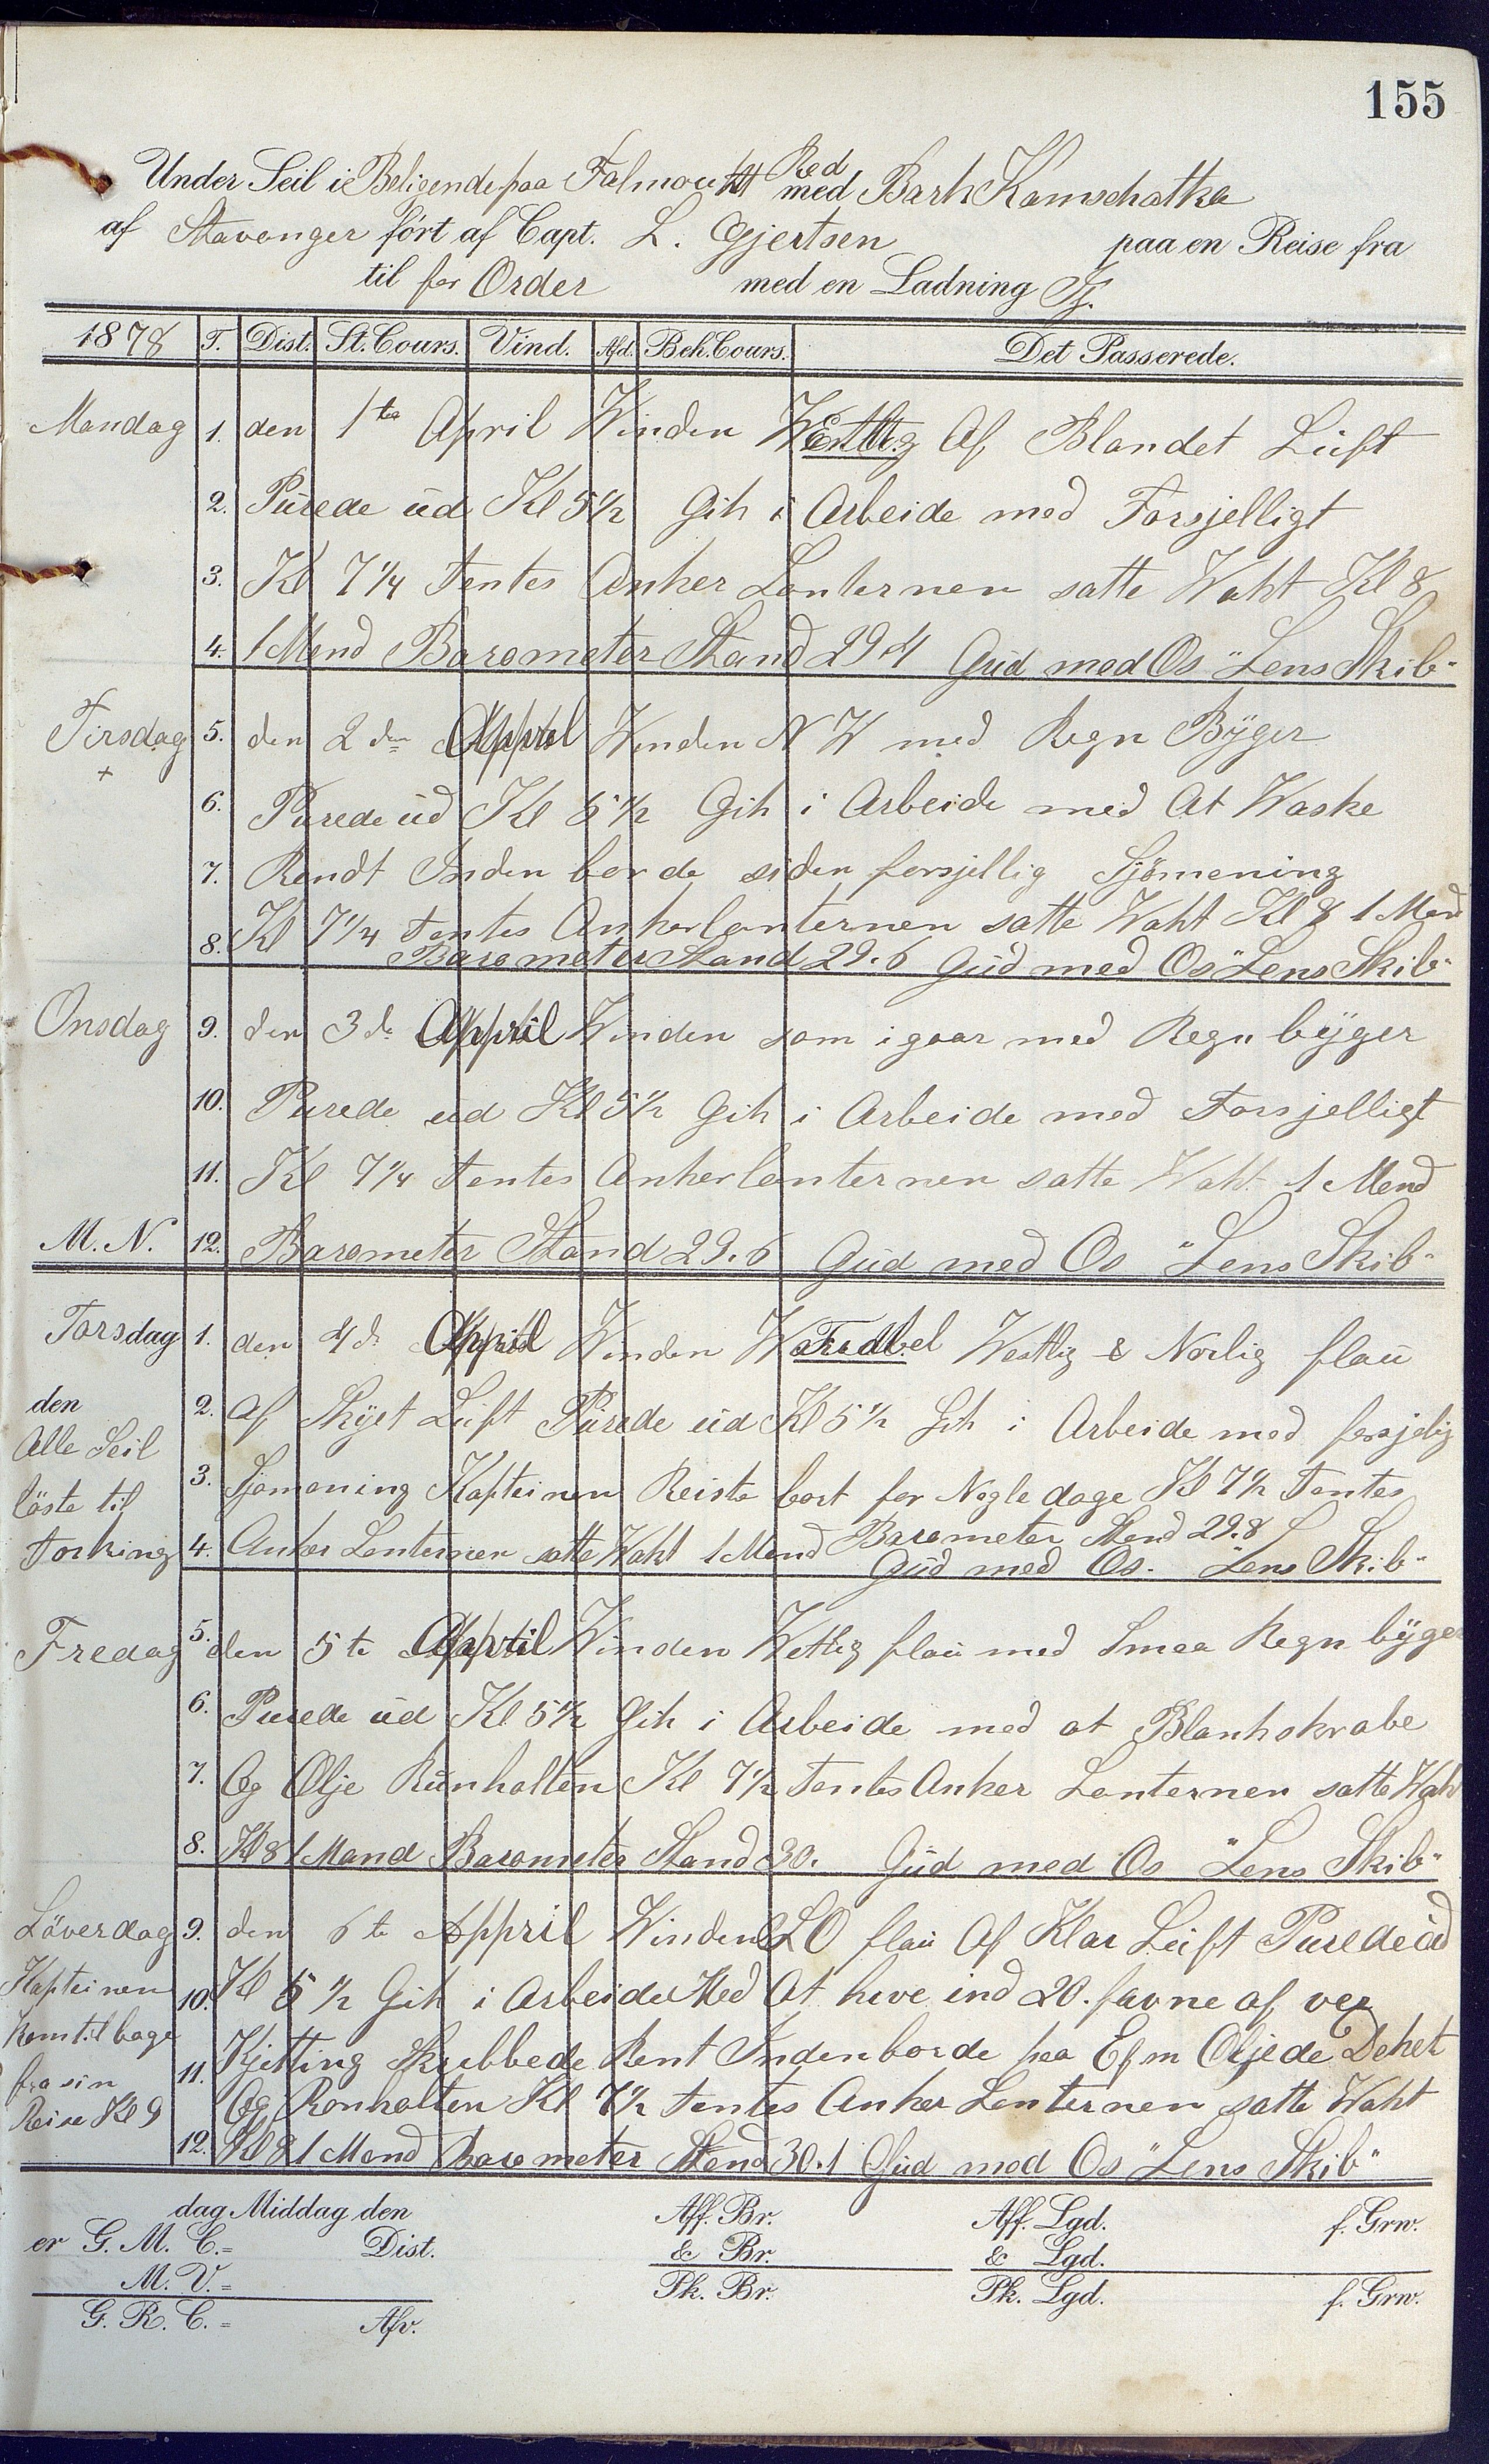 155
Under Seil i Beligende paa Falmouth Red med Bark Kamschatka
af Stavanger fört af Capt. L. Gjertsen paa en Reise fra
til for Order med en Ladning
1878 T. Dist. St. Cours. Vind. Afd. Beh. Cours. Det Passerede.
Mandag 1. den 1te April Winden Af Blandet Lüft
2. Pürede üd Kl 5 1/2 Gik i Arbeide med Forsjelligt
3. Kl 7 1/4 Tentes Anker Lanternen satte Wakt Kl 8
4. 1 Mand Barometer Stand 29.4 Güd med Os "Lens Skib"
Tirsdag 5. den 2den Appril Winden N W med Regn Byger
+
6. Purede üd Kl 5 1/2 Gik i Arbeide med At Waske
7. Rondt Inden borde siden forsjellig Sjömening
8. Kl 7 1/4 tentes Ankerlanternen satte Wakt Kl 8 1 Mand
Barometer Stand 29.6 Güd med Os "Lens Skib"
Onsdag 9. den 3de Appril Winden som igaar med Regn byger
10. Purede üd Kl 5 1/2 Gik i Arbeide med Forsjelligt
11. Kl 7 1/4 Tentes Ankerlanternen satte Wakt 1 Mand
M. N. 12. Barometer Stand 29.6 Güd med Os "Lens Skib"
Torsdag 1. den 4de Appril Winden Westlig & Norlig flaü
den 2. Af Skyet Lüft Pürede üd Kl 5 1/2 Gik i Arbeide med forsjelig
Alle Seil
löste til 3. Sjömening Kapteinen Reiste bort for Nogle dage Kl 7 1/2 Tentes
Torking 4. Anker Lanternen satte Wakt 1 Mand Barometer Stand 29.8
Güd med Os. "Lens Skib"
Fredag 5. den 5te Appril Winden Wetlig flaü med Smaa Regn byger
6. Purede üd Kl 5 1/2 Gik i Arbeide med at Blankskrabe
7. Og Olje Rünholten Kl 7 1/2 Tentes Anker Lanternen satte Wak
8. Kl 8 1 Mand Barometer Stand 30. Güd med Os "Lens Skib"
Löverdag 9. den 6te Appril Winden SO flaü Af Klar Lüft Purede üd
Kapteinen 10. Kl 5 1/2 Gik i Arbeide Med At hive ind 20. favne af ver
kom tilbage
fra sin 11. Kjetting Skrubbede Rent Indenborde paa Efm Oljede Deket
Reise Kl 9 Og Ronholten Kl 7 1/2 tentes Anker Lanternen satte Wakt
12. Kl 8 1 Mand Barometer Stand 30.1 Güd med Os "Lens Skib"
dag Middag den Aff. Br. Aff. Lgd. f. Grw.
er G. M. C.= Dist. & Br. & Lgd.
M. V.= Pk. Br. Pk. Lgd. f. Grw.
G. R. C.= Afv.